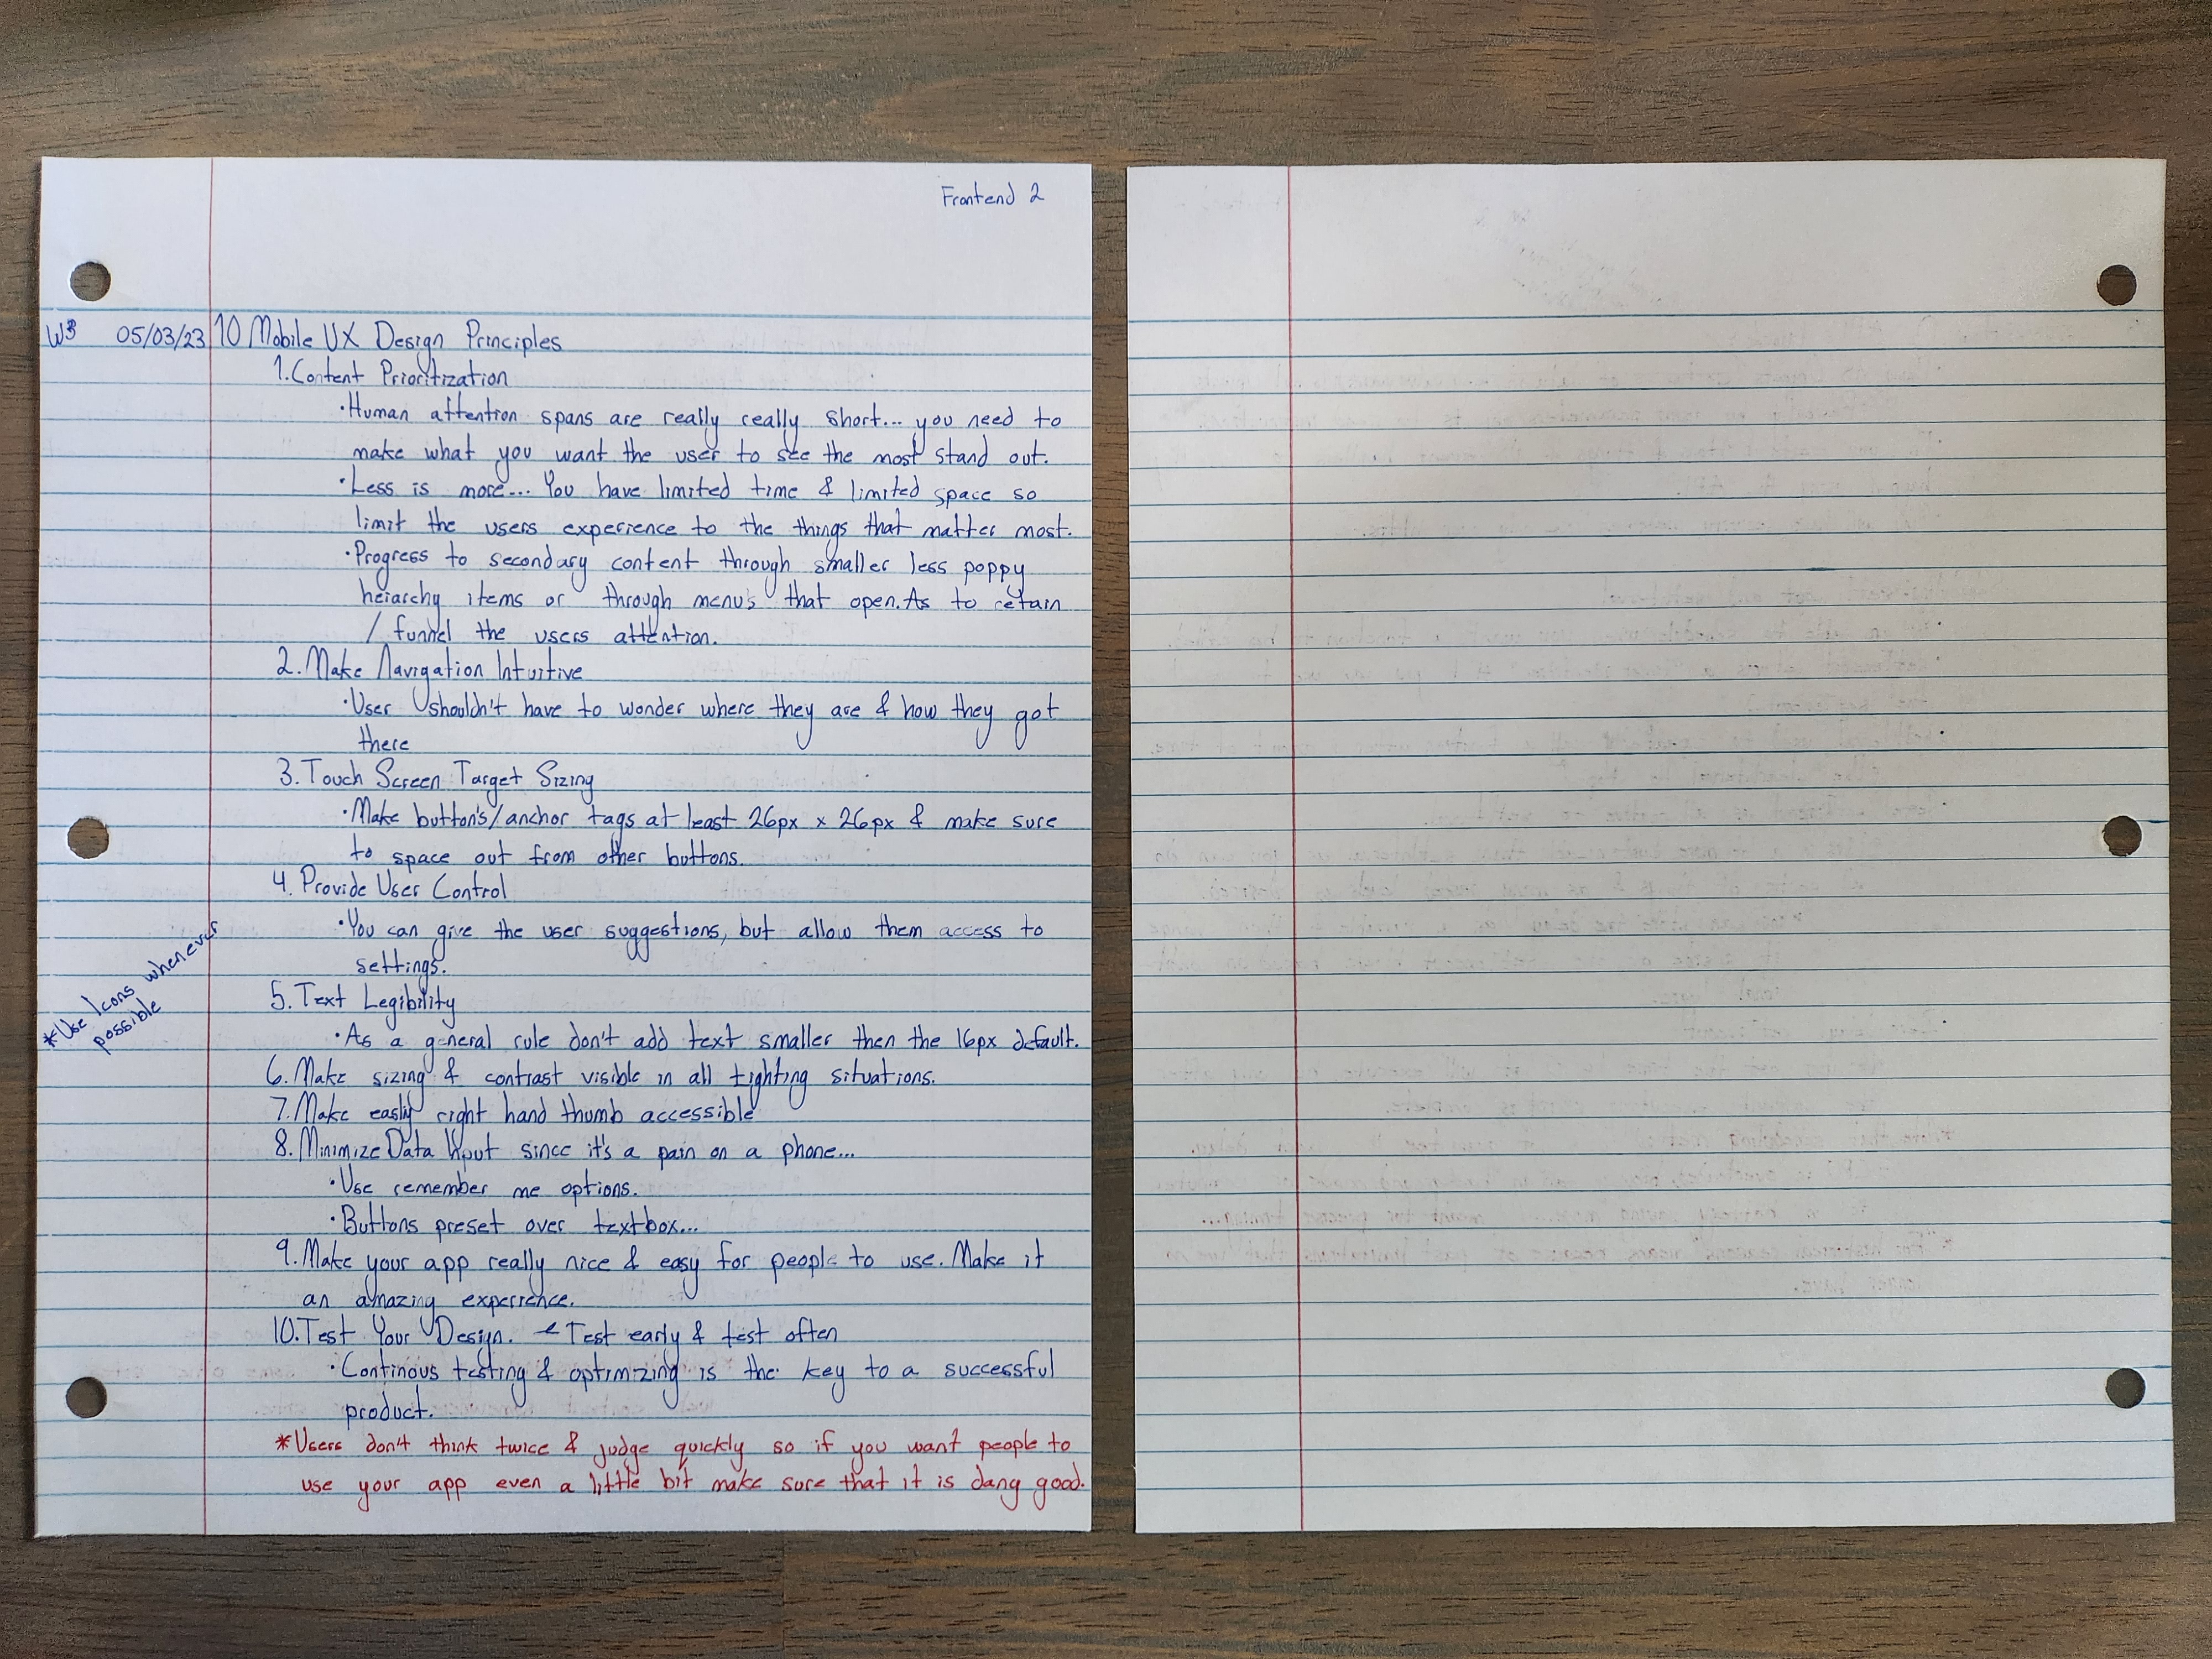 Frontend 2
W3 05/03/23 10 Mobile UX Design Principles
1. Content Prioritization
• Human attention spans are really really short... you need to
make what you want the user to see the most stand out.
• Less is more... You have limited time & limited space so
limit the users experience to the things that matter most.
• Progress to secondary content through smaller less poppy
heiarchy items or through menu's that open. As to retain
/ funnel the users attention.
2. Make Navigation Intuitive
• User Ushouldn't have to wonder where they are & how they got
there
3. Touch Screen Target Sizing
• Make button's/anchor tags at least 26px x 26px & make sure
to space out from other buttons.
4. Provide User Control
• You can give the user suggestions, but allow them access to
settings.
5. Text Legibility
*Use Icons whenever
possible
• As a general rule don't add text smaller then the 16px default.
6. Make sizing & contrast visible in all lighting situations.
7. Make easily right hand thumb accessible
8. Minimize Data Input since it's a pain on a phone...
• Use remember me options.
• Buttons preset over textbox...
9. Make your app really nice & easy for people to use. Make it
an amazing experience.
10. Test Your Design. Test early & test often
• Continous testing & optimizing is the key to a successful
product.
*Users don't think twice & judge quickly so if you want people to
use your app even a little bit make sure that it is dang good.